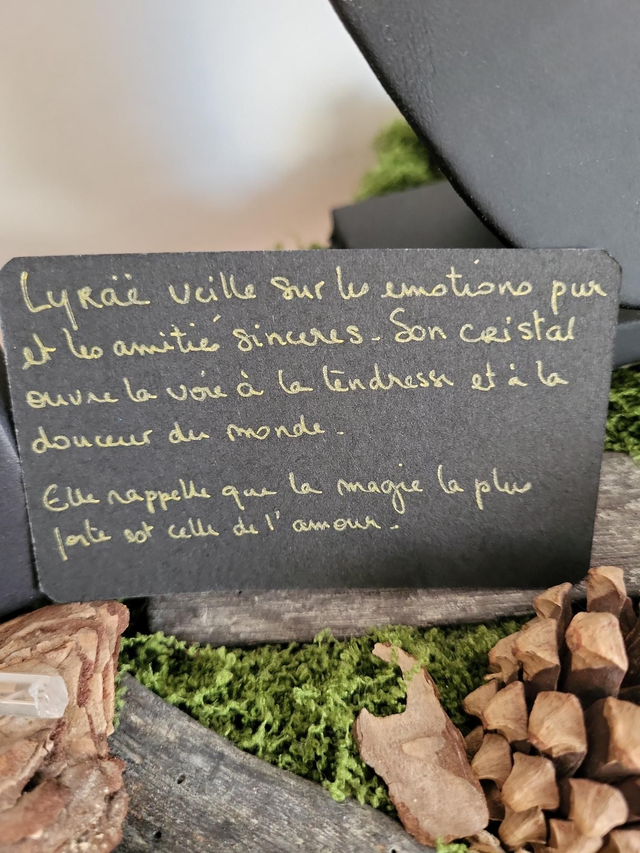 Lyraë veille sur les emotions pur
et les amitié sinceres. Son cristal
ouvre la voie à la tendresse et à la
douceur du monde.
Elle rappelle que la magie la plus
forte est celle de l'amour.